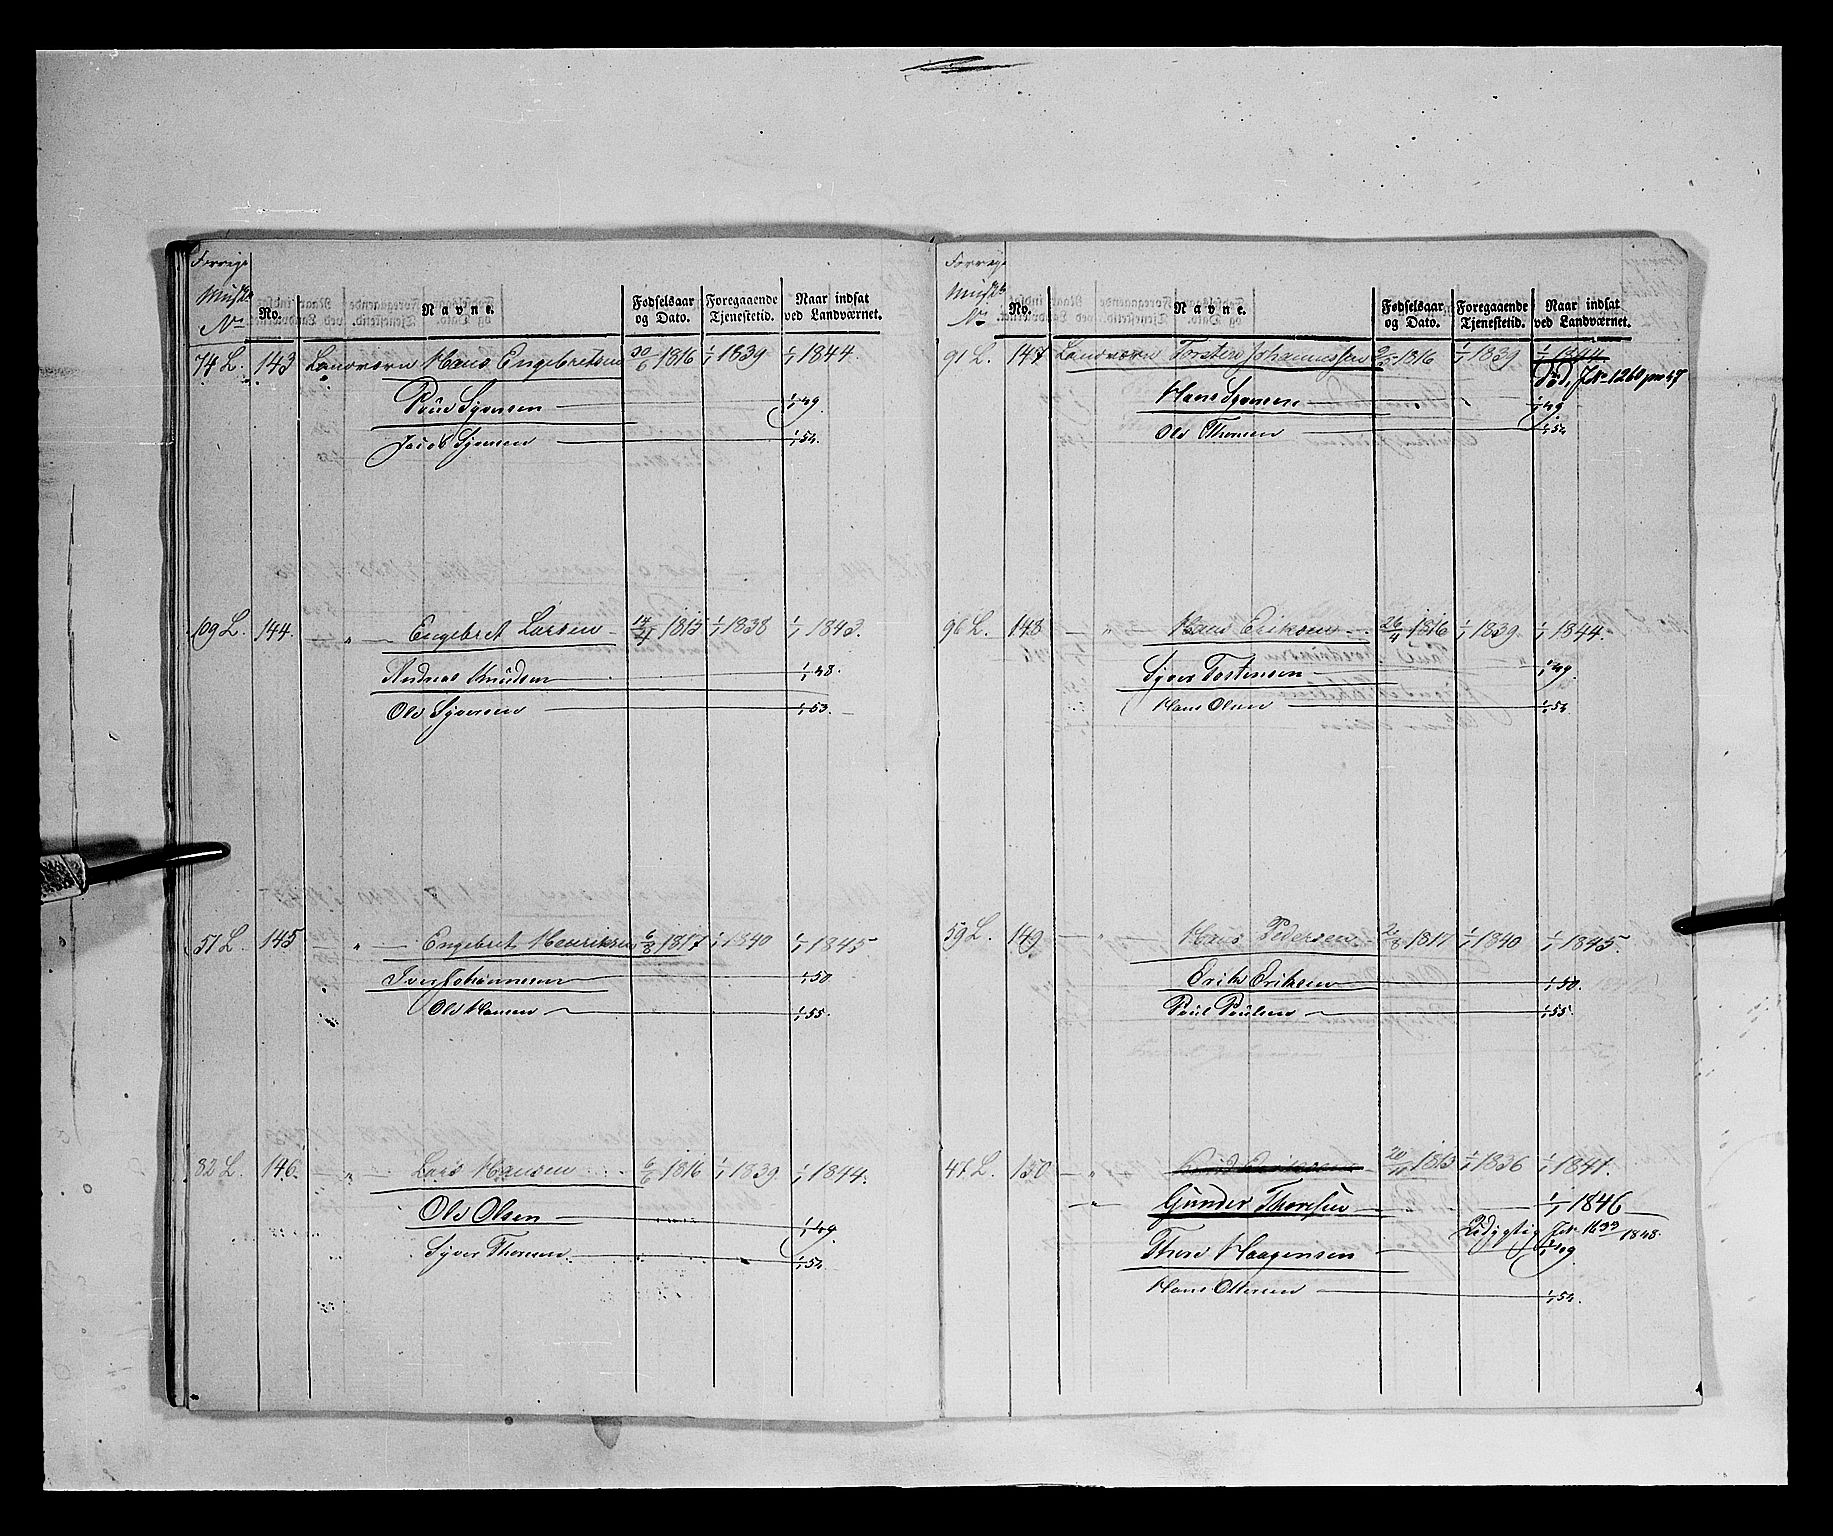 Forrige
No. Navne. Fødselsaar og Dato. Foregaaende Tjenestetid. Naar indsat ved Landværnet.
No
74 L. 143 Landværn Hans Engebretsen 30/6 1816 1/1 1839 1/1 1844.
Poul Syversen 1/1 49
Jacob Syversen 1/1 54.
109 L. 144. " Engebret Larsen 14/4 1815 1/1 1838 1/1 1843.
Andreas Knudsen 1/1 48.
Ole Syversen 1/1 53.
51 L. 145 " Engebret Henriksen 6/8 1817 1/1 1840 1/1 1845.
Iver Johannesen 1/1 50
Ole Hansen 1/1 55.
82 L. 146. " Lars Hansen 6/6 1816 1/1 1839 1/1 1844.
Ole Olsen 1/1 49.
Syver Thoresen 1/1 54.
Forrige
No. Navne. Fødselsaar og Dato. Foregaaende Tjenestetid. Naar indsat ved Landværnet.
No
91 L. 147 Landværn Torsten Johannessen 1816 1/1 1839 1/1 1844.
Død, 1260 47
Hans Syversen 1/1 49
Ole Thoresen 1/1 54
96 L. 148 " Hans Eriksen 26/4 1816 1/1 1839 1/1 1844.
Syver Torstensen 1/1 49.
Hans Olsen 1/1 54.
59 L. 149 " Hans Pedersen 2/8 1817 1/1 1840 1/1 1845.
Erik Eriksen 1/1 50.
Poul Poulsen 1/1 55.
47 L. 150 " 1813 1/1 1836 1/1 1841.
" Gunder Thoresen 1/1 1846
Udygtig 1633 1848.
Thore Haagensen 1/1 49.
Hans Ottersen 1/1 54.